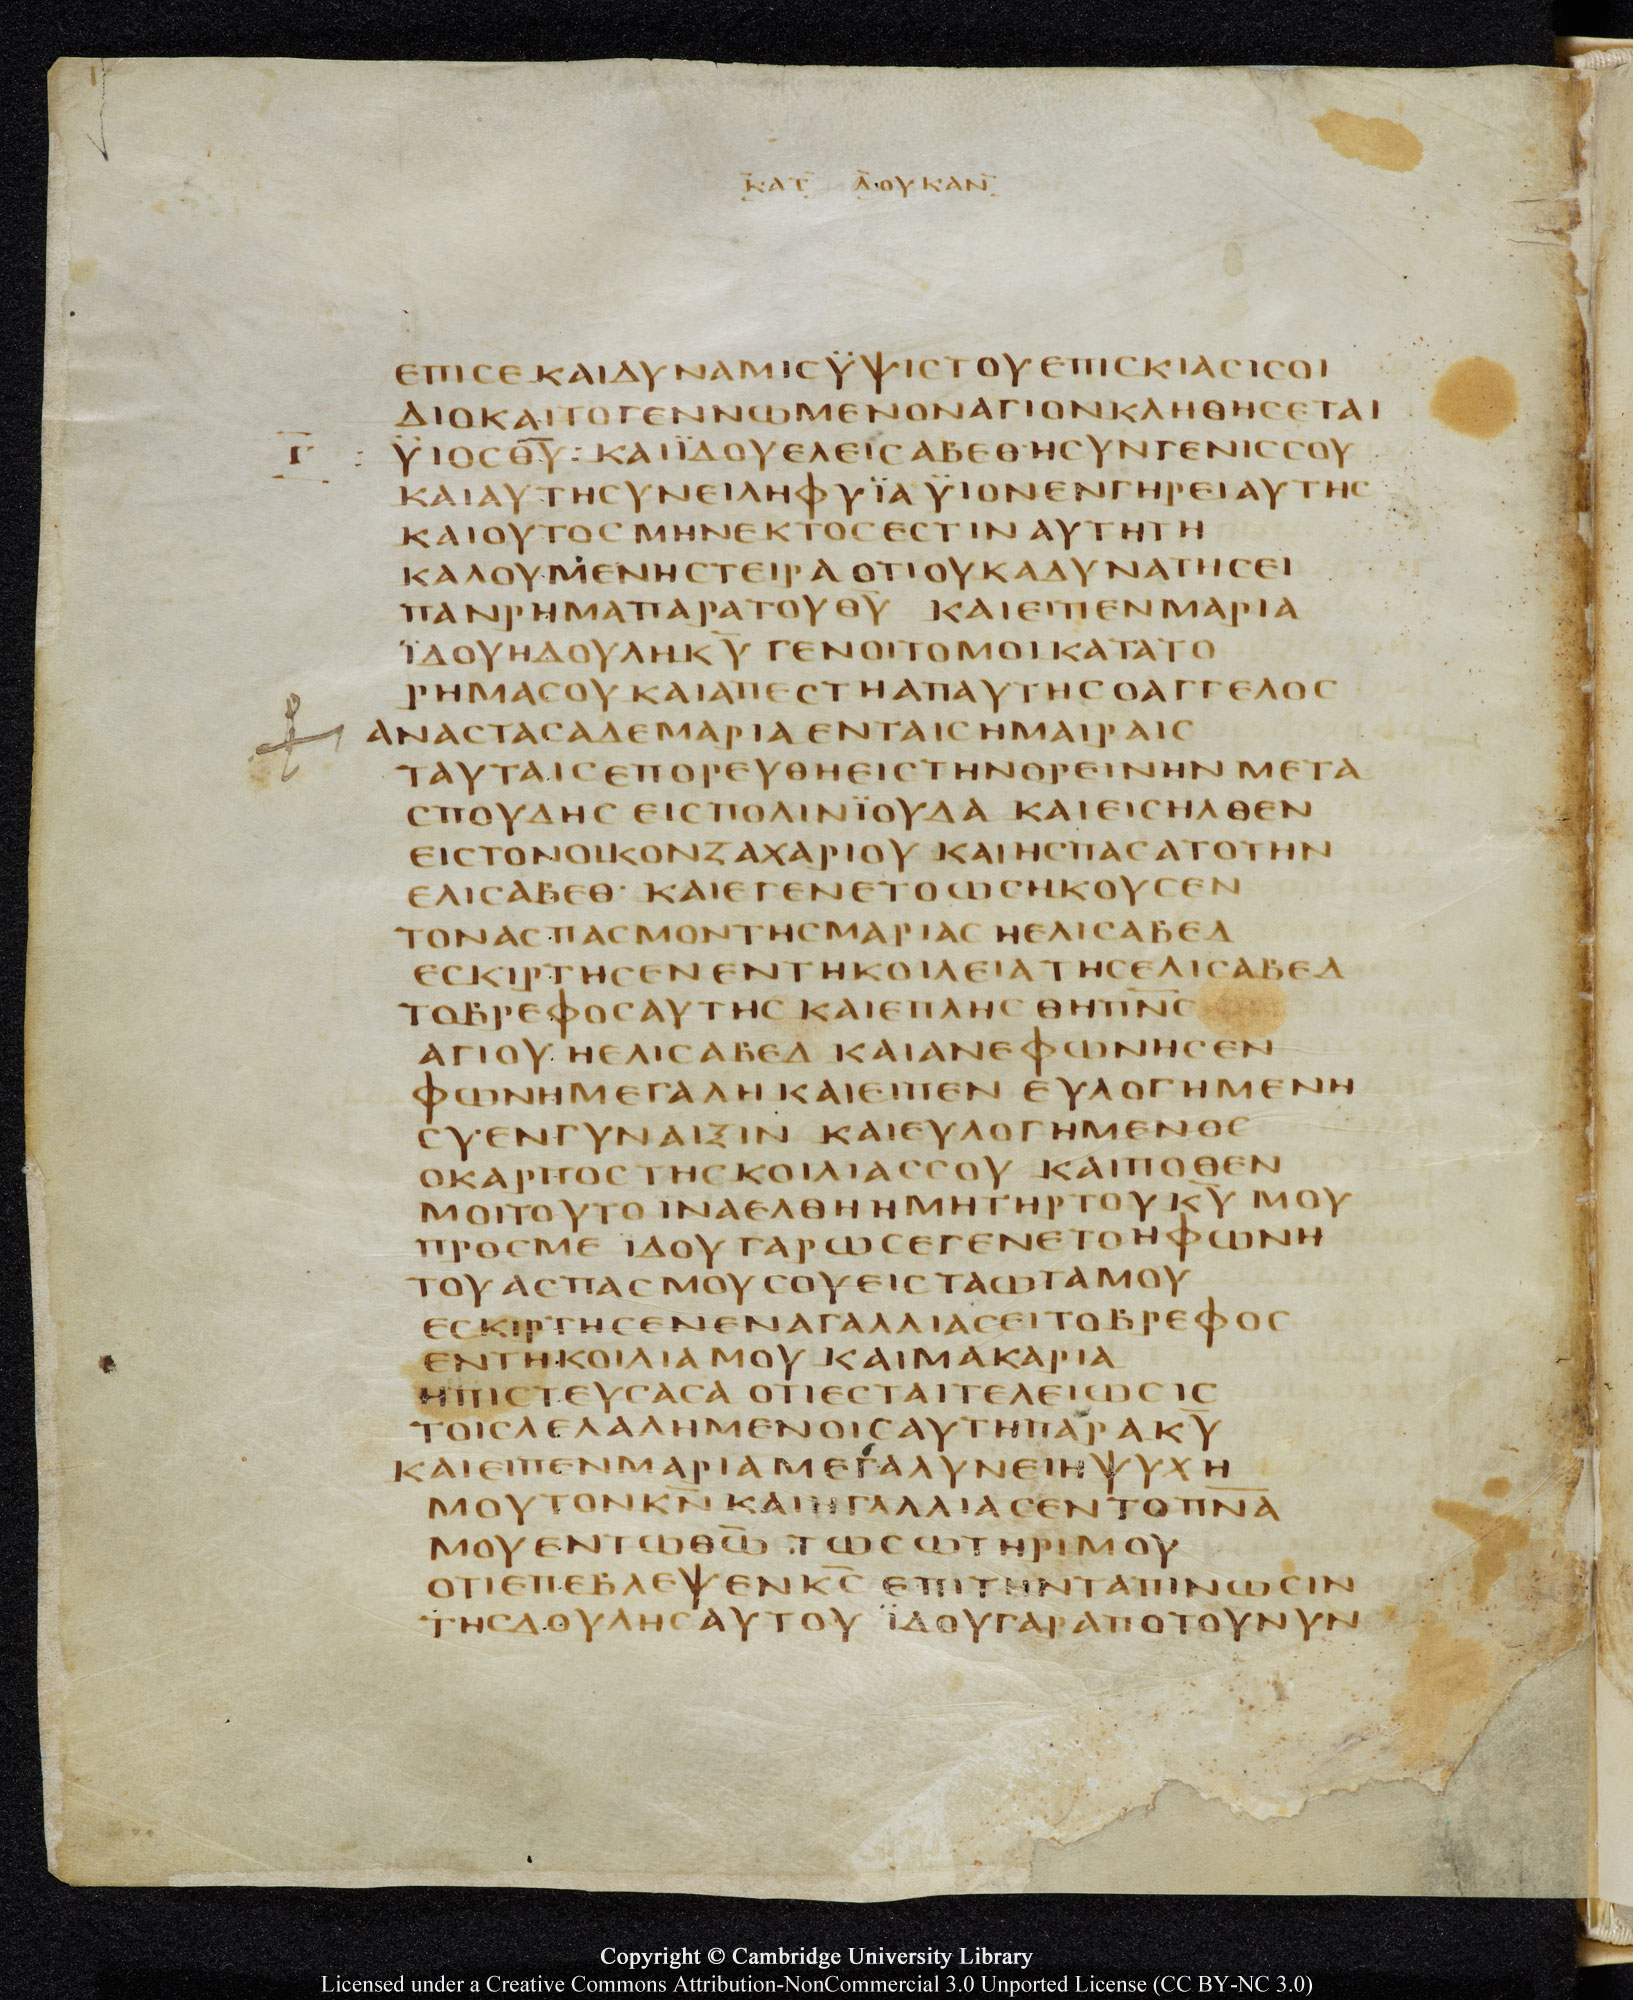 ΚΑΤ ΛΟΥΚΑΝ
ΕΠΙCΕ ΚΑΙΔΥΝΑΜΙCΫΨΙCΤΟΥΕΠΙCΚΙΑCΙCΟΙ
ΔΙΟΚΑΙΤΟΓΕΝΝΩΜΕΝΟΝΑΓΙΟΝΚΛΗΘΗCΕΤΑΙ
Γ ΫΙΟCΘ̅Υ̅: ΚΑΙΪΔΟΥΕΛΕΙCΑΒΕΘΗCΥΝΓΕΝΙCCΟΥ
ΚΑΙΑΥΤΗCΥΝΕΙΛΗΦΥΪΑ ΫΙΟΝΕΝΓΗΡΕΙΑΥΤΗC
ΚΑΙΟΥΤΟCΜΗΝΕΚΤΟCΕCΤΙΝ ΑΥΤΗΤΗ
ΚΑΛΟΥΜΕΝΗCΤΕΙΡΑ ΟΤΙΟΥΚΑΔΥΝΑΤΗCΕΙ
ΠΑΝΡΗΜΑΠΑΡΑΤΟΥΘ̅Υ̅ ΚΑΙΕΙΠΕΝΜΑΡΙΑ
ΪΔΟΥΗΔΟΥΛΗΚ̅Υ̅ ΓΕΝΟΙΤΟΜΟΙΚΑΤΑΤΟ
ΡΗΜΑCΟΥ ΚΑΙΑΠΕCΤΗΑΠΑΥΤΗCΟΑΓΓΕΛΟC
ΑΝΑCΤΑCΑΔΕΜΑΡΙΑ ΕΝΤΑΙCΗΜΑΙΡΑΙC
ΤΑΥΤΑΙCΕΠΟΡΕΥΘΗΕΙCΤΗΝΟΡΕΙΝΗΝ ΜΕΤΑ
CΠΟΥΔΗC ΕΙCΠΟΛΙΝΪΟΥΔΑ ΚΑΙΕΙCΗΛΘΕΝ
ΕΙCΤΟΝΟΙΚΟΝΖΑΧΑΡΙΟΥ ΚΑΙΗCΠΑCΑΤΟΤΗΝ
ΕΛΙCΑΒΕΘ· ΚΑΙΕΓΕΝΕΤΟΩCΗΚΟΥCΕΝ
ΤΟΝΑCΠΑCΜΟΝΤΗCΜΑΡΙΑC ΗΕΛΙCΑΒΕΔ
ΕCΚΙΡΤΗCΕΝ ΕΝΤΗΚΟΙΛΕΙΑΤΗCΕΛΙCΑΒΕΔ
ΤΟΒΡΕΦΟCΑΥΤΗC ΚΑΙΕΠΛΗCΘΗΠ̅Ν̅C̅
ΑΓΙΟΥ ΗΕΛΙCΑΒΕΔ ΚΑΙΑΝΕΦΩΝΗCΕΝ
ΦΩΝΗΜΕΓΑΛΗ ΚΑΙΕΙΠΕΝ ΕΥΛΟΓΗΜΕΝΗ
CΥ·ΕΝΓΥΝΑΙΞΙΝ ΚΑΙΕΥΛΟΓΗΜΕΝΟC
ΟΚΑΡΠΟCΤΗCΚΟΙΛΙΑCCΟΥ ΚΑΙΠΟΘΕΝ
ΜΟΙΤΟΥΤΟ ΙΝΑΕΛΘΗΗΜΗΤΗΡΤΟΥΚ̅Υ̅ ΜΟΥ
ΠΡΟCΜΕ ΪΔΟΥΓΑΡΩCΕΓΕΝΕΤΟΗΦΩΝΗ
ΤΟΥΑCΠΑCΜΟΥCΟΥΕΙCΤΑΩΤΑΜΟΥ
ΕCΚΙΡΤΗCΕΝΕΝΑΓΑΛΛΙΑCΕΙΤΟΒΡΕΦΟC
ΕΝΤΗΚΟΙΛΙΑΜΟΥ ΚΑΙΜΑΚΑΡΙΑ
ΗΠΙCΤΕΥCΑCΑ ΟΤΙΕCΤΑΙΤΕΛΕΙΩCΙC
ΤΟΙCΛΕΛΑΛΗΜΕΝΟΙCΑΥΤΗΠΑΡΑΚ̅Υ̅
ΚΑΙΕΙΠΕΝΜΑΡΙΑΜΕΓΑΛΥΝΕΙΗΨΥΧΗ
ΜΟΥΤΟΝΚ̅Ν̅ ΚΑΙΗΓΑΛΛΙΑCΕΝΤΟΠ̅Ν̅Α̅
ΜΟΥΕΝΤΩΘ̅Ω̅ ΤΩCΩΤΗΡΙΜΟΥ
ΟΤΙΕΠΕΒΛΕΨΕΝΚ̅C̅ ΕΠΙΤΗΝΤΑΠΙΝΩCΙΝ
ΤΗCΔΟΥΛΗCΑΥΤΟΥ ΪΔΟΥΓΑΡΑΠΟΤΟΥΝΥΝ
Copyright © Cambridge University Library
Licensed under a Creative Commons Attribution-NonCommercial 3.0 Unported License (CC BY-NC 3.0)